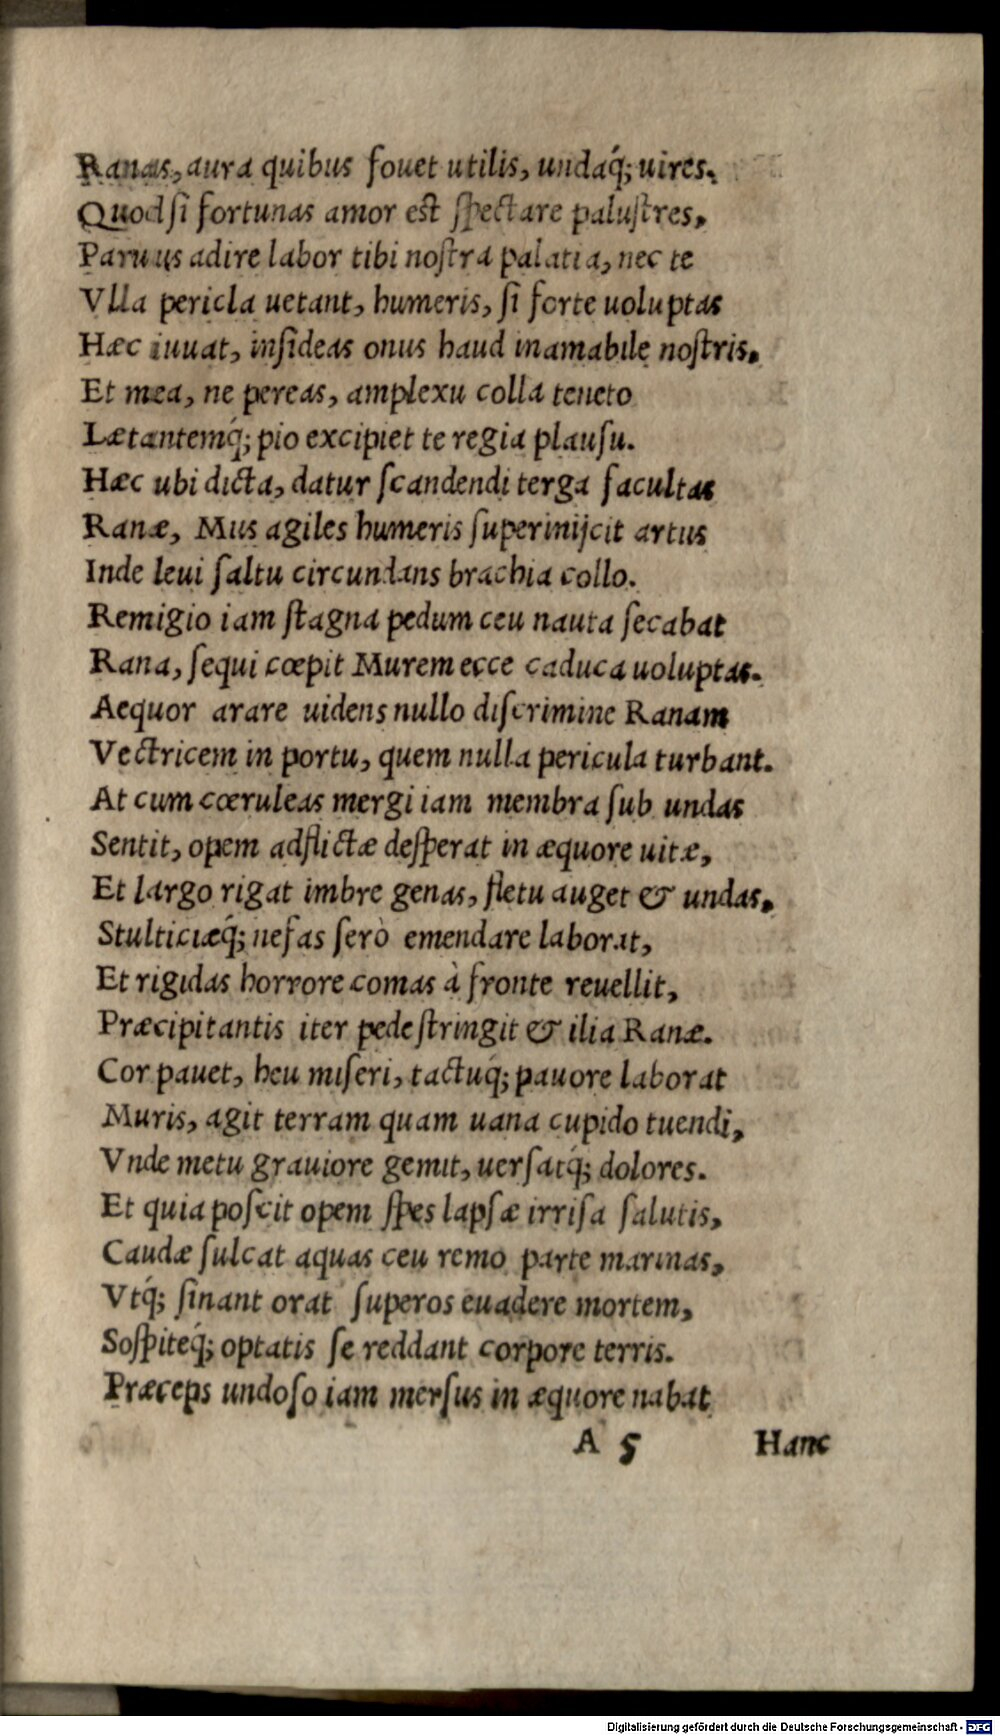 Ranas, aura quibus fouet utilis, undaq́; uires.
Quod si fortunas amor est spectare palustres,
Paruus adire labor tibi nostra palatia, nec te
Vlla pericla uetant, humeris, si forte uoluptas
Hæc iuuat, insideas onus haud inamabile nostris.
Et mea, ne pereas, amplexu colla teneto
Lætantemq́; pio excipiet te regia plausu.
Hæc ubi dicta, datur scandendi terga facultas
Ranæ, Mus agiles humeris superinijcit artus
Inde leui saltu circundans brachia collo.
Remigio iam stagna pedum ceu nauta secabat
Rana, sequi cœpit Murem ecce caduca uoluptas.
Aequor arare uidens nullo discrimine Ranam
Vectricem in portu, quem nulla pericula turbant.
At cum cœruleas mergi iam membra sub undas
Sentit, opem adflictæ desperat in æquore uitæ,
Et largo rigat imbre genas, fletu auget & undas,
Stulticiæq́; nefas serò emendare laborat,
Et rigidas horrore comas à fronte reuellit,
Præcipitantis iter pede stringit & ilia Ranæ.
Cor pauet, heu miseri, tactuq́; pauore laborat
Muris, agit terram quam uana cupido tuendi,
Vnde metu grauiore gemit, uersatq́; dolores.
Et quia poscit opem spes lapsæ irrisa salutis,
Caudæ sulcat aquas ceu remo parte marinas,
Vtq́; sinant orat superos euadere mortem,
Sospiteq́; optatis se reddant corpore terris.
Præceps undoso iam mersus in æquore nabat
A 5 Hanc
Digitalisierung gefördert durch die Deutsche Forschungsgemeinschaft - DFG